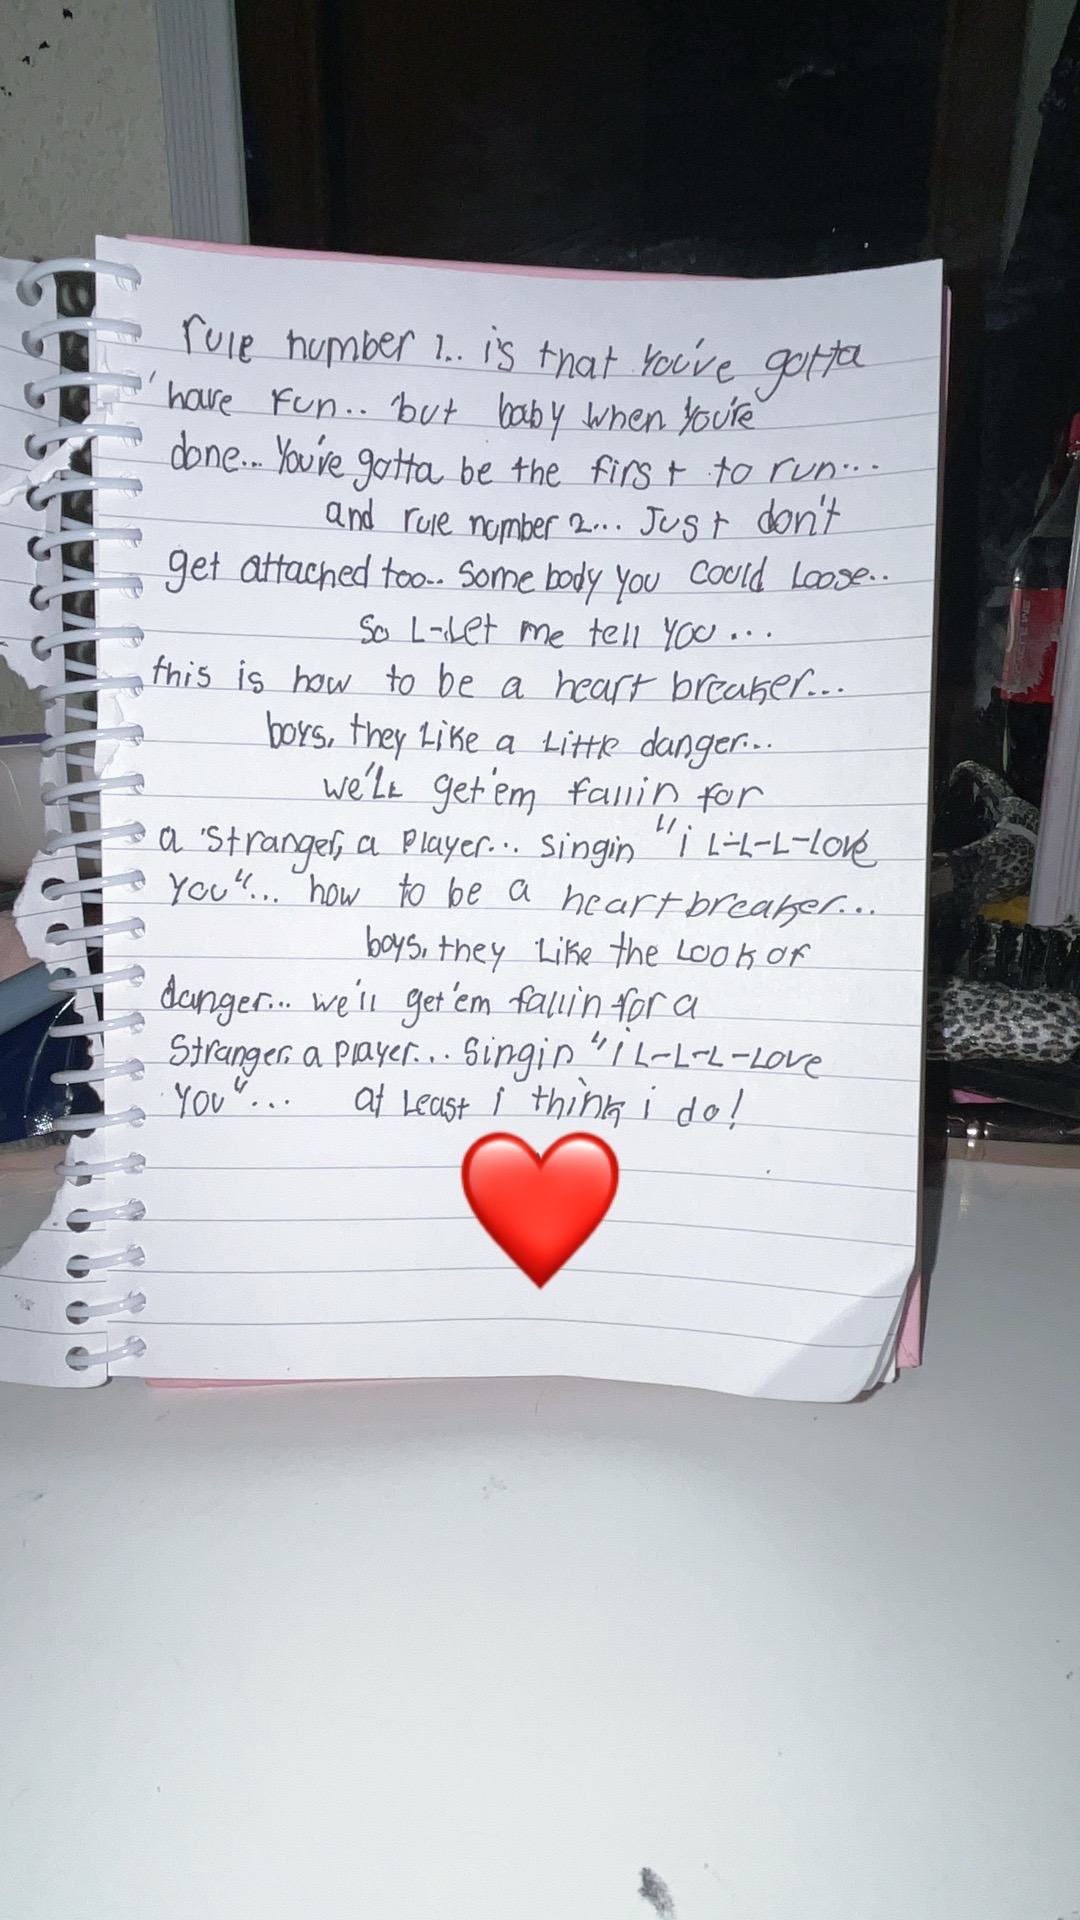 rule number 1.. is that you've gotta
have fun.. but baby when you're
done... You're gotta be the first to run...
and rule number 2... Just don't
get attached too.. Somebody you could Loose..
So L-Let me tell you...
this is how to be a heart breaker...
boys, they Like a Little danger...
we'll get'em fallin for
a Stranger, a Player... Singin "i L-L-L-Love
You"... how to be a heartbreaker...
boys, they Like the Look of
danger... we'll get'em fallin for a
Stranger, a Player... Singin "i L-L-L-Love
You"... at Least i think i do!